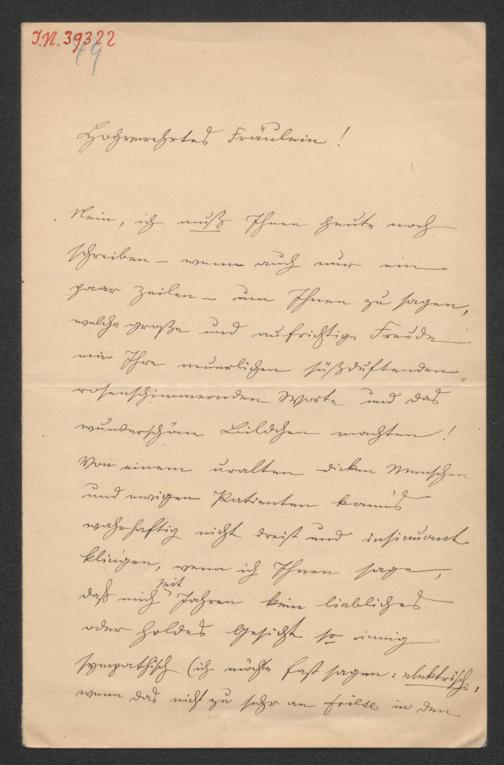 I.N. 39322
79
Hochverehrtes Fräulein!
Nein, ich muß Ihnen heute noch
schreiben – wenn auch nur ein
paar Zeilen – um Ihnen zu sagen,
welche große und aufrichtige Freude
mir Ihre neuerlichen süßduftenden,
rosenschimmernden Worte und das
wunderschöne Bildchen machten!
Von einem uralten dicken Menschen
und ewigen Patienten kann's
wahrhaftig nicht dreist und insinuant
klingen, wenn ich Ihnen sage,
daß mich seit Jahren kein liebliches
oder holdes Gesicht so innig
sympathisch (ich möchte fast sagen: elektrisch,
wenn das nicht zu sehr an in den